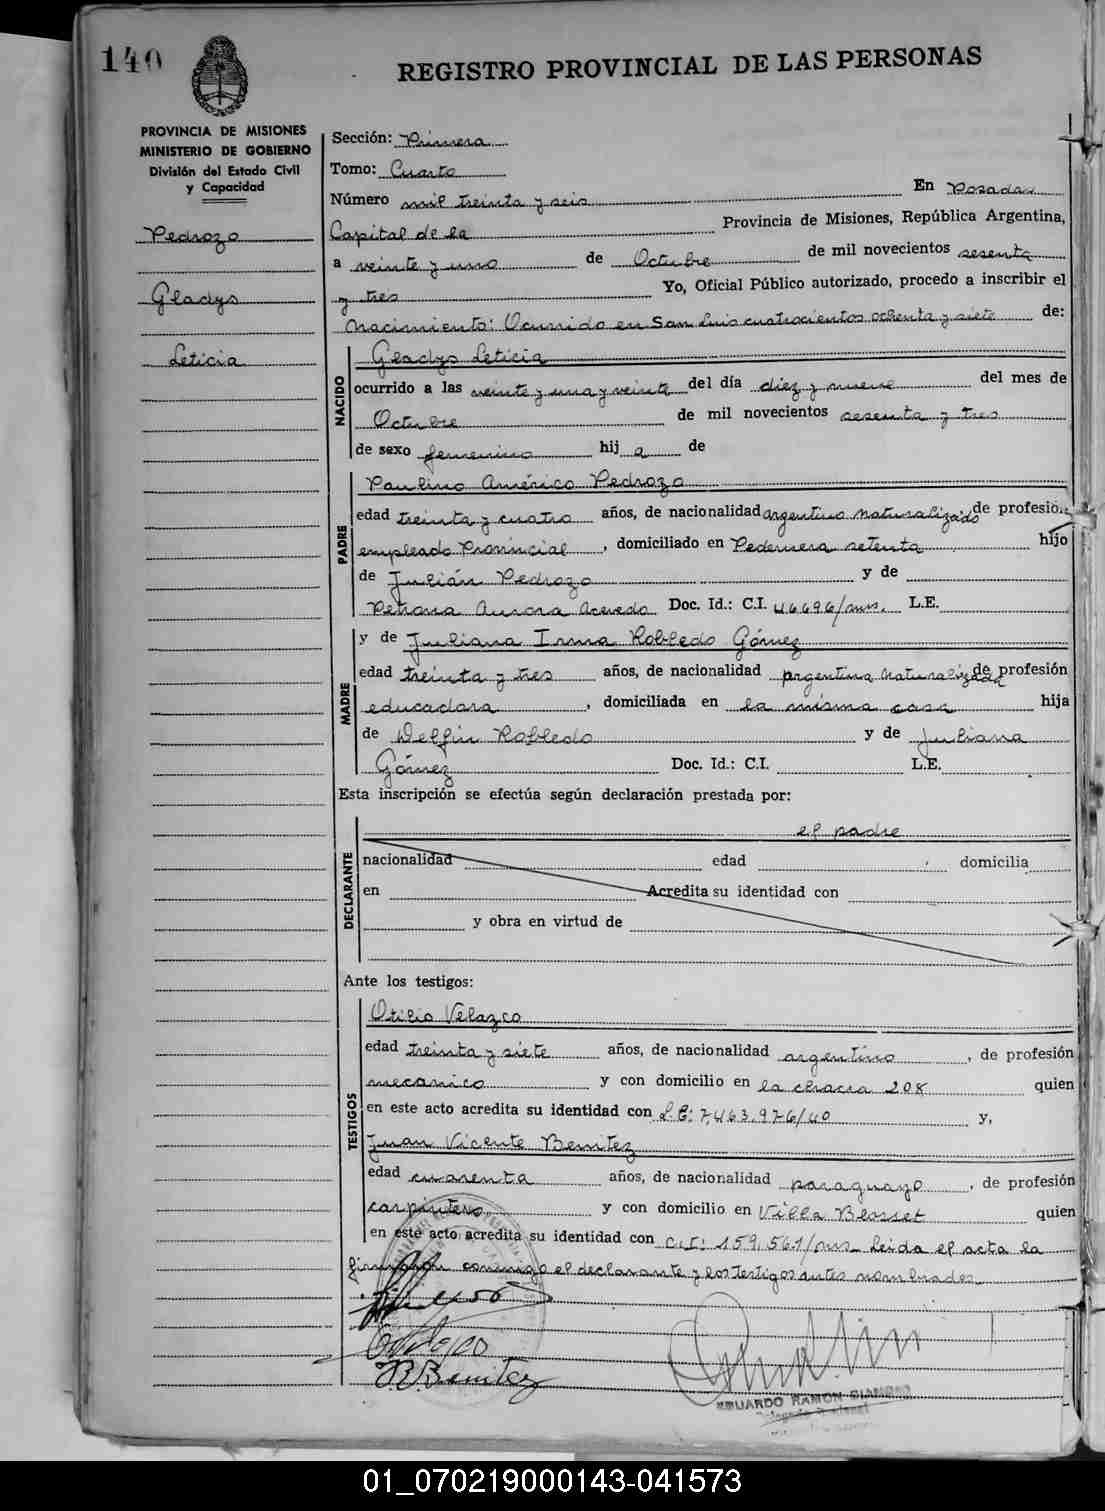 140
REGISTRO PROVINCIAL DE LAS PERSONAS
PROVINCIA DE MISIONES
MINISTERIO DE GOBIERNO
División del Estado Civil
y Capacidad
Pedrozo
Gladys
Leticia
Sección: Primera
Tomo: Cuarto
Número mil treinta y seis En Posadas
Capital de la Provincia de Misiones, República Argentina,
a veinte y uno de Octubre de mil novecientos sesenta
y tres Yo, Oficial Público autorizado, procedo a inscribir el
Nacimiento: Ocurrido en San Luis cuatrocientos ochenta y siete de:
NACIDO
Gladys Leticia
ocurrido a las veinte y una y veinte del día diez y nueve del mes de
Octubre de mil novecientos sesenta y tres
de sexo femenino hij a de
PADRE
Paulino Américo Pedrozo
edad treinta y cuatro años, de nacionalidad argentino naturalizado de profesión
empleado Provincial, domiciliado en Pedernera setenta hijo
de Julián Pedrozo y de
Petrona Aurora Acevedo Doc. Id.: C.I. 46696/mns. L.E.
MADRE
y de Juliana Irma Robledo Gómez
edad treinta y tres años, de nacionalidad argentina naturalizada de profesión
educadora, domiciliada en la misma casa hija
de Delfín Robledo y de Juliana
Gómez Doc. Id.: C.I. L.E.
Esta inscripción se efectúa según declaración prestada por:
DECLARANTE
el padre
nacionalidad edad domicilia
en Acredita su identidad con
y obra en virtud de
Ante los testigos:
TESTIGOS
Otilio Velazco
edad treinta y siete años, de nacionalidad argentino, de profesión
mecanico y con domicilio en la chacra 208 quien
en este acto acredita su identidad con L.E: 7.463.976/40 y,
Juan Vicente Benitez
edad cuarenta años, de nacionalidad paraguayo, de profesión
carpintero y con domicilio en Villa Blosset quien
en este acto acredita su identidad con C.I: 159.561/mns. Leida el acta la
firmaron conmigo el declarante y los testigos antes nombrados.
B. Benitez
EDUARDO RAMON
01_070219000143-041573